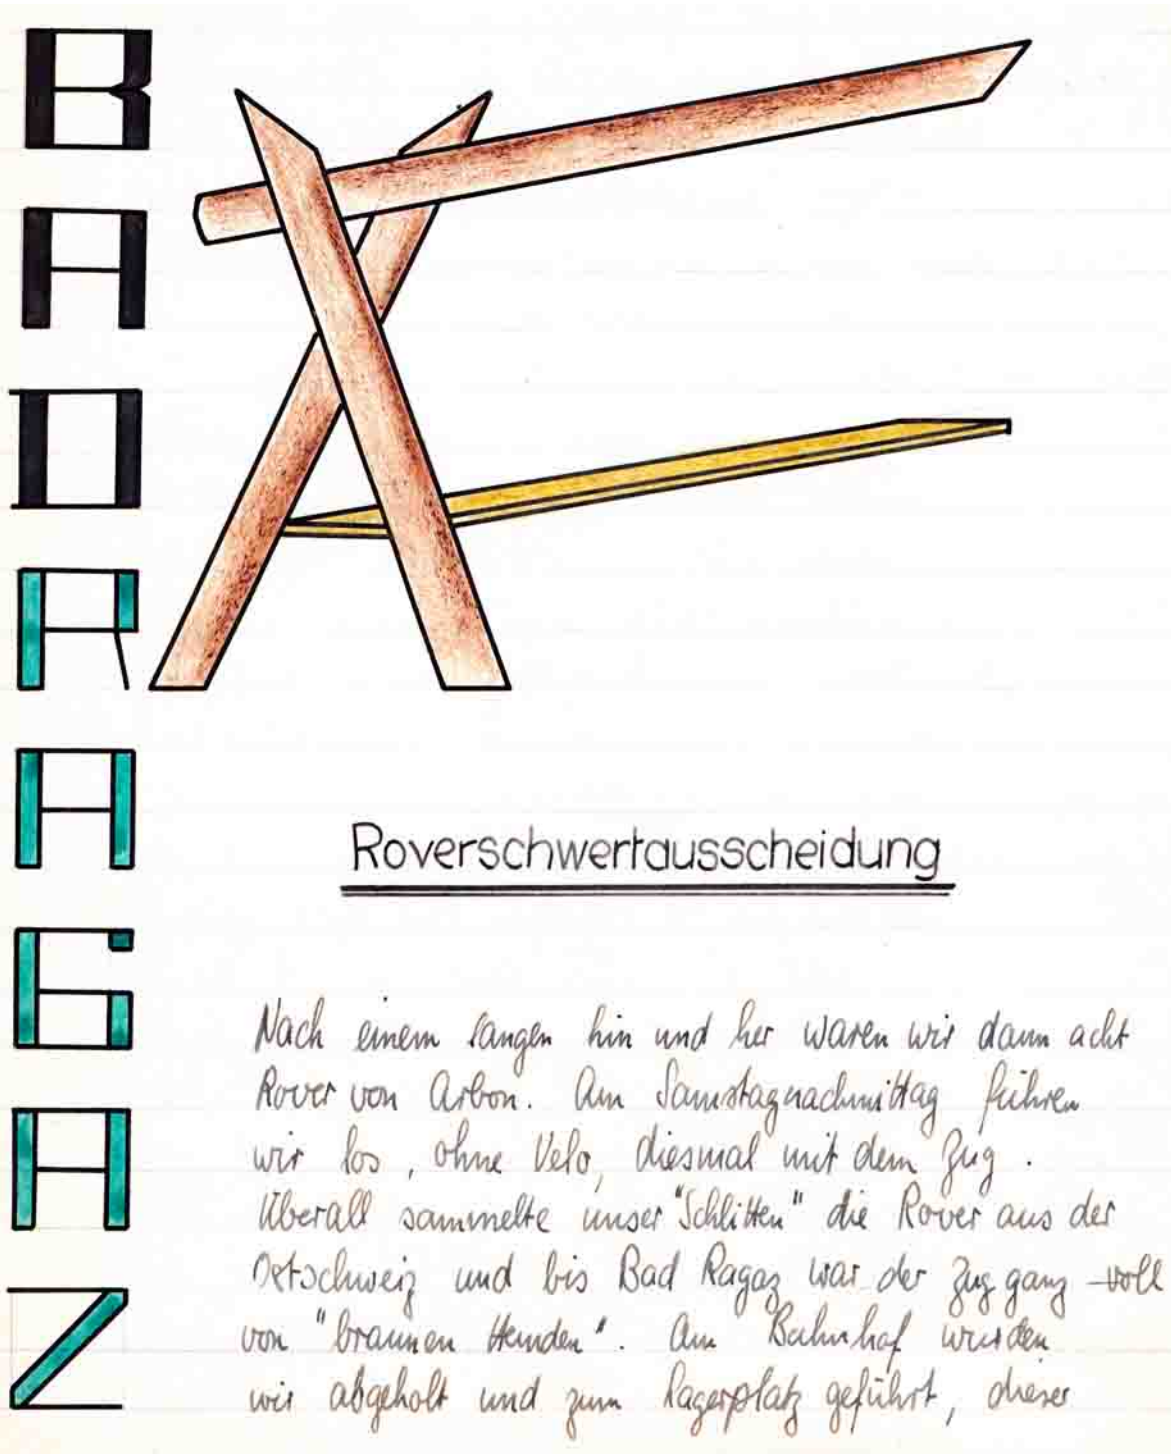 BAD RAGAZ
Roverschwertausscheidung
Nach einem langen hin und her waren wir dann acht
Rover von Arbon. Am Samstagnachmittag führen
wir los, ohne Velo, diesmal mit dem Zug.
Überall sammelte unser "Schlitten" die Rover aus der
Ostschweiz und bis Bad Ragaz war der Zug ganz voll
von "braunen Hemden". Am Bahnhof wurden
wir abgeholt und zum Lagerplatz geführt, dieser